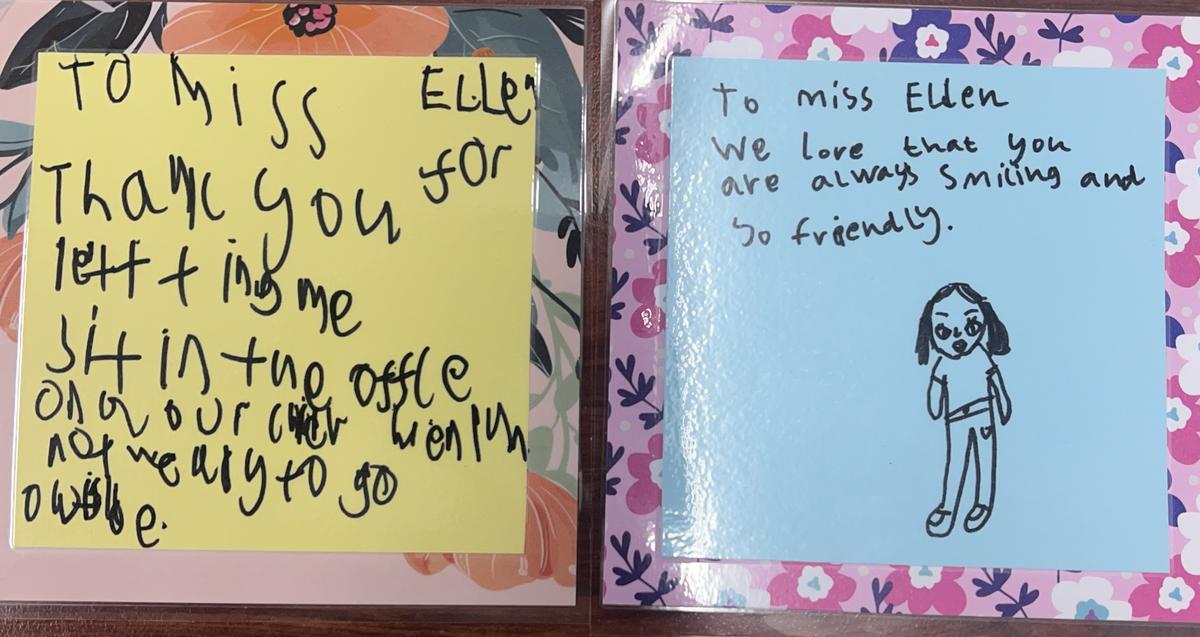 TO Miss Ellen
Thank you for
letting me
sit in the office
on your
not weary to go
To miss Ellen
We love that you
are always smiling and
so friendly.